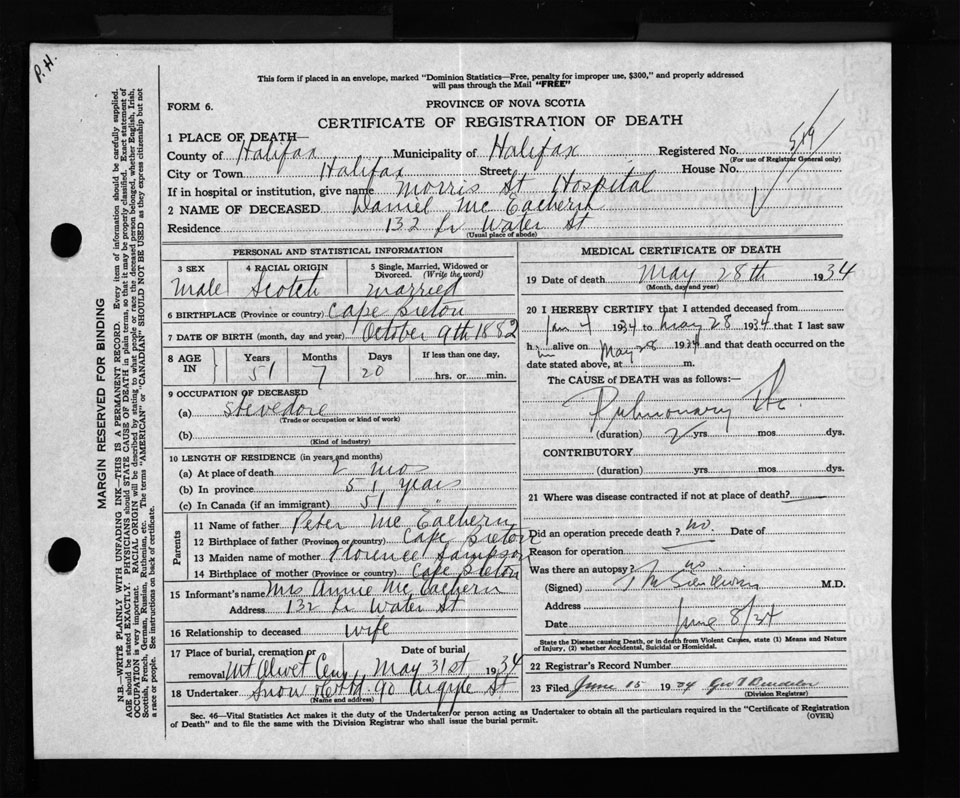 P.H.
This form if placed in an envelope, marked "Dominion Statistics—Free, penalty for improper use, $300," and properly addressed
will pass through the Mail "FREE"
FORM 6.
PROVINCE OF NOVA SCOTIA
CERTIFICATE OF REGISTRATION OF DEATH
1 PLACE OF DEATH—
County of Halifax Municipality of Halifax Registered No. 519
(For use of Registrar General only)
City or Town Halifax Street House No.
If in hospital or institution, give name Morris St Hospital
2 NAME OF DECEASED Daniel Mc Eachern
Residence 132 Lr Water St
(Usual place of abode)
PERSONAL AND STATISTICAL INFORMATION
3 SEX Male
4 RACIAL ORIGIN Scotch
5 Single, Married, Widowed or Divorced. (Write the word) married
6 BIRTHPLACE (Province or country) Cape Breton
7 DATE OF BIRTH (month, day and year) October 9th 1882
8 AGE IN Years 51 Months 7 Days 20 If less than one day, hrs. or min.
9 OCCUPATION OF DECEASED
(a) Stevedore
(Trade or occupation or kind of work)
(b)
(Kind of industry)
10 LENGTH OF RESIDENCE (in years and months)
(a) At place of death 2 mos
(b) In province 51 years
(c) In Canada (if an immigrant) 51 "
Parents
11 Name of father Peter Mc Eachern
12 Birthplace of father (Province or country) Cape Breton
13 Maiden name of mother Florence Sampson
14 Birthplace of mother (Province or country) Cape Breton
15 Informant's name Mrs Annie Mc Eachern
Address 132 Lr Water St
16 Relationship to deceased wife
17 Place of burial, cremation or removal Mt Olivet Cem Date of burial May 31st 1934
18 Undertaker Snow 90 Argyle St
(Name and address)
MEDICAL CERTIFICATE OF DEATH
19 Date of death May 28th 1934
(Month, day and year)
20 I HEREBY CERTIFY that I attended deceased from
1934 to May 28 1934 that I last saw
him alive on May 28 1934 and that death occurred on the
date stated above, at m.
The CAUSE of DEATH was as follows:—
Pulmonary
(duration) 2 yrs mos dys.
CONTRIBUTORY
(duration) yrs mos dys.
21 Where was disease contracted if not at place of death?
Did an operation precede death? no. Date of
Reason for operation
Was there an autopsy? no
(Signed) M.D.
Address
Date June 8/34
State the Disease causing Death, or in death from Violent Causes, state (1) Means and Nature
of Injury, (2) whether Accidental, Suicidal or Homicidal.
22 Registrar's Record Number
23 Filed June 15 1934 Geo
(Division Registrar)
Sec. 46—Vital Statistics Act makes it the duty of the Undertaker or person acting as Undertaker to obtain all the particulars required in the "Certificate of Registration
of Death" and to file the same with the Division Registrar who shall issue the burial permit. (OVER)
MARGIN RESERVED FOR BINDING
N.B.—WRITE PLAINLY WITH UNFADING INK—THIS IS A PERMANENT RECORD. Every item of information should be carefully supplied.
AGE should be stated EXACTLY. PHYSICIANS should STATE CAUSE OF DEATH in plain terms, so that it may be properly classified. Exact statement of
OCCUPATION is very important. RACIAL ORIGIN will be described by stating to what people or race the deceased person belonged, whether English, Irish,
Scottish, French, German, Russian, Ruthenian, etc. The terms "AMERICAN" or "CANADIAN" SHOULD NOT BE USED as they express citizenship but not
a race or people. See instructions on back of certificate.